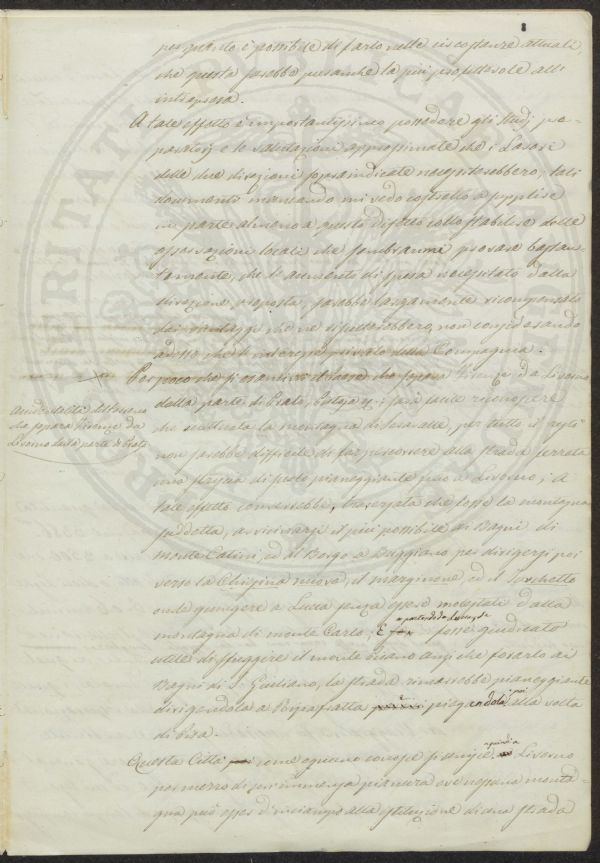 8
per quanto è possibile di farlo nelle circostanze attuali,
che questa sarebbe pur anche la più profittevole all'
intrapresa.
A tale effetto è importantissimo possedere gli studj pre-
paratorj e le valutazioni approssimate che i lavori
delle due direzioni sopraindicate necessiterebbero; tali
documenti mancando mi vedo costretto a supplire
in parte almeno a questo difetto collo stabilire delle
osservazioni locali che sembranmi provare bastan-
temente, che l'aumento di spesa necessitato dalla
direzione proposta, sarebbe largamente ricompensato
dai vantaggi che ne risulterebbero, non considerando
adesso che l'interesse privato della Compagnia.
Per poco che si esamini il paese che separa Firenze da Livorno
dalla parte di Prato, Pescia &c. sarà facile riconoscere
che scavalcata la montagna di Seravalle, per tutto il resto
non sarebbe difficile di far percorrere alla strada ferrata
una striscia di suolo pianeggiante fino a Livorno; A
tale effetto converrebbe, traversata che fosse la montagna
suddetta, avvicinarsi il più possibile ai Bagni di
Monte Catini, ed il Borgo a Buggiano per dirigersi poi
verso la Chiesina nuova, il marginone, ed il Turchetto
onde giungere a Lucca senza essere molestati dalla
montagna di monte Carlo; E
a partendo da Lucca, se
fosse giudicato
utile di sfuggire il monte Pisano anzi che forarlo ai
Bagni di S. Giuliano, la strada rimarrebbe pianeggiante
dirigendola a Ripafratta piegandola poi alla volta
di Pisa.
Questa Città come ognuno conosce si unisce quindi a Livorno
per mezzo di un'immensa pianura ove nessuna monta-
gna può essere d'inciampo alla costruzione di una strada
Accidentalità del terreno
che separa Firenze da
Livorno dalla parte di Prato